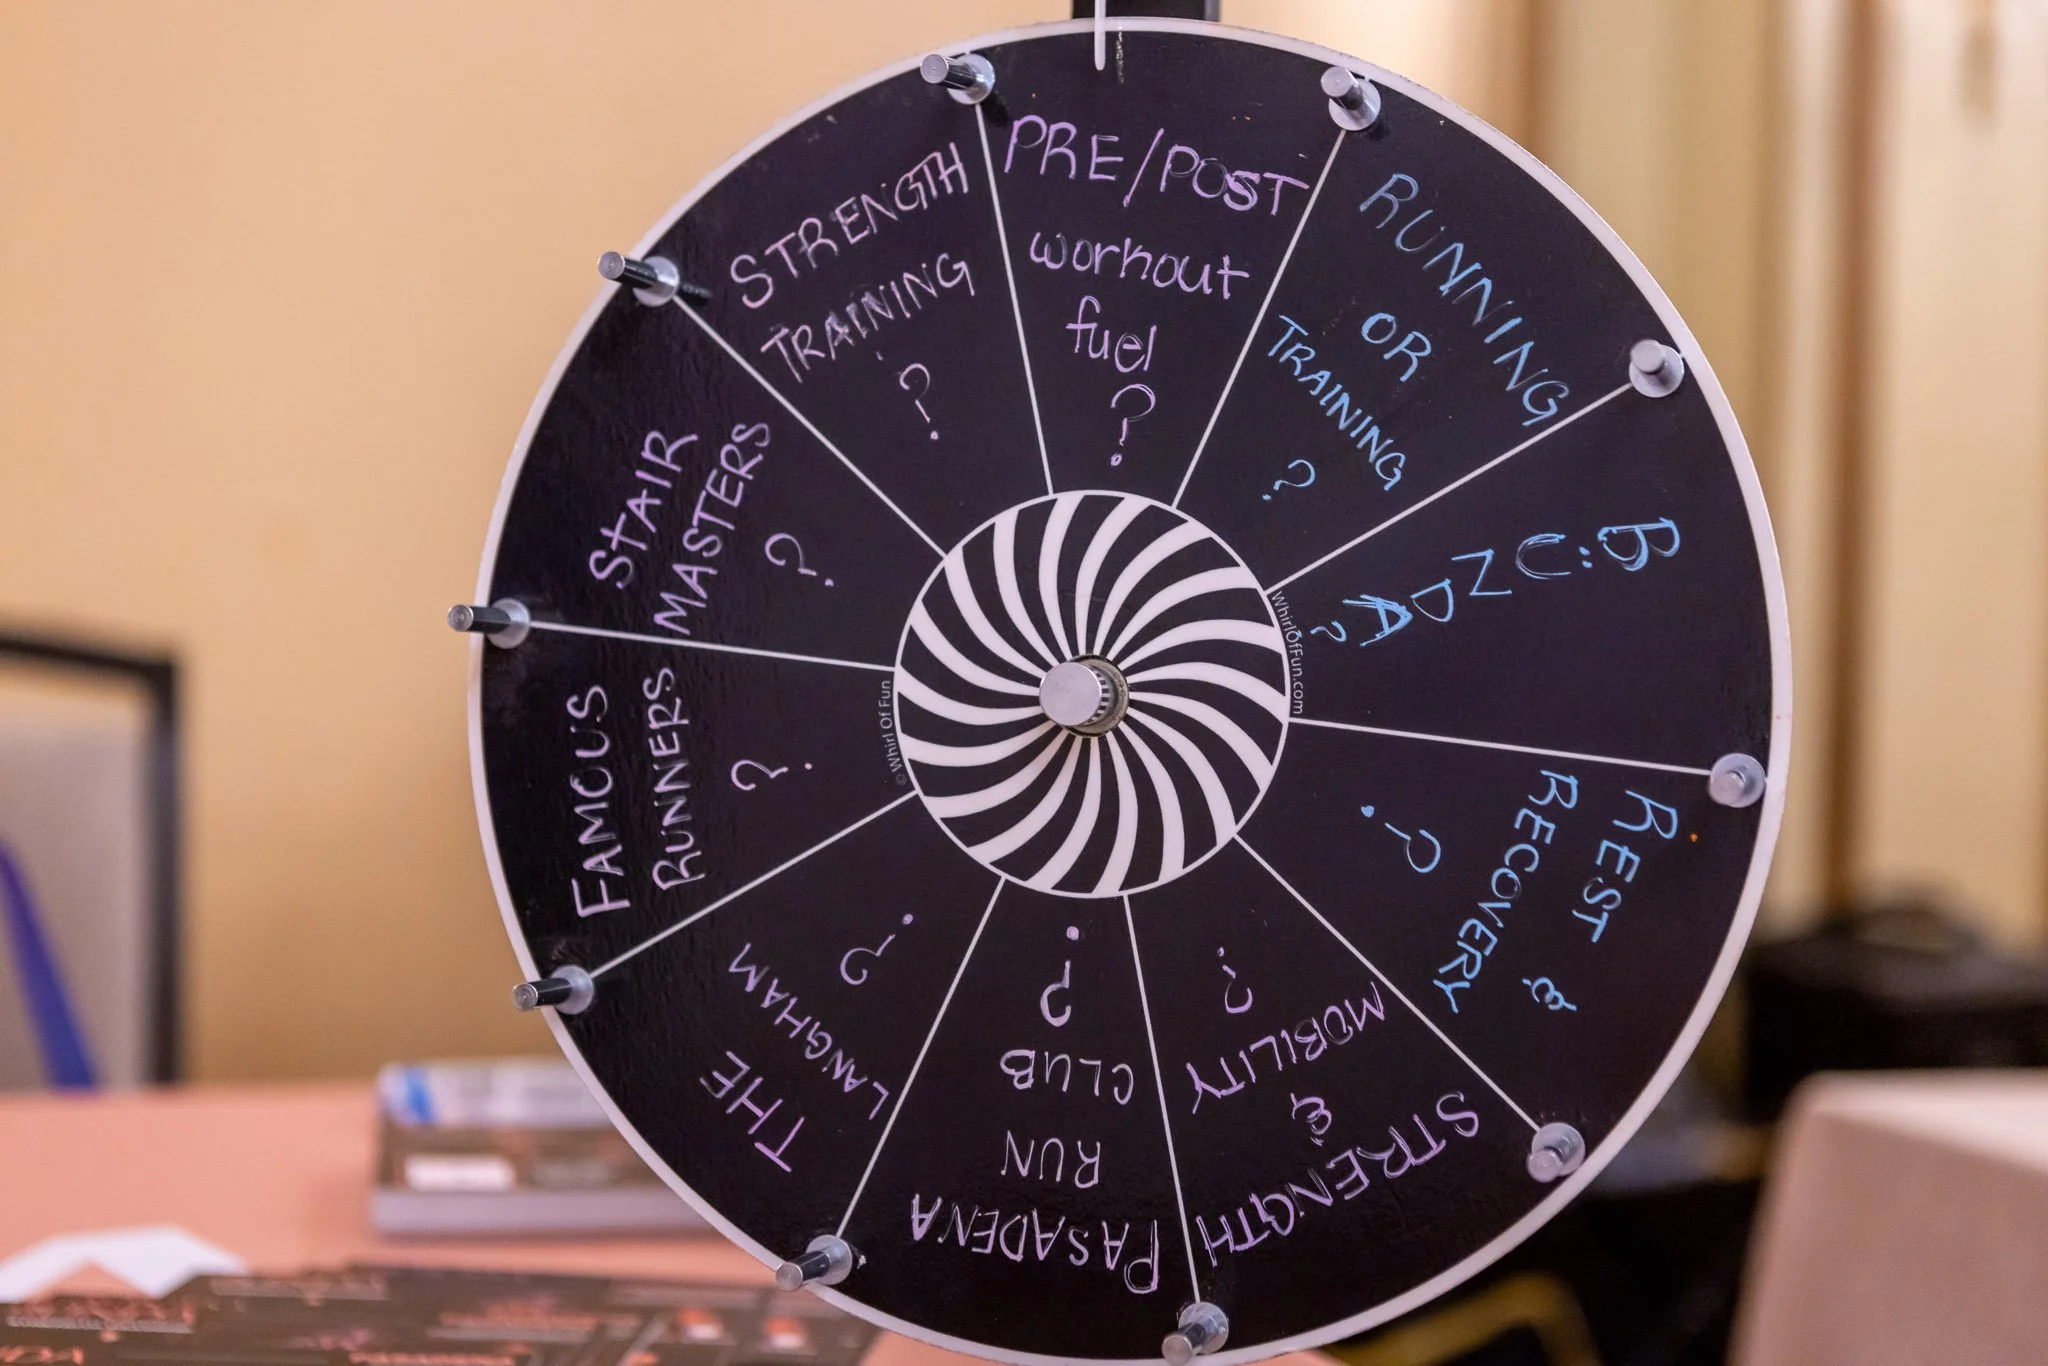 PRE/POST
workout
fuel
?
RUNNING
OR
TRAINING
?
BÜNDA?
REST &
RECOVERY
?
STRENGTH
&
MOBILITY
?
PASADENA
RUN
CLUB
?
THE
LANGHAM
?
FAMOUS
RUNNERS
?
STAIR
MASTERS
?
STRENGTH
TRAINING
?
WhirlOfFun.com
© Whirl Of Fun